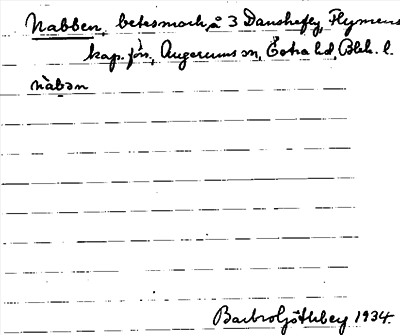 Nabben, betesmark, å 3 Danskefly, Flymens
kap. förs., Augerums sn, Östra hd, Blek. l.
nàbən
Barbro Götheby 1934.